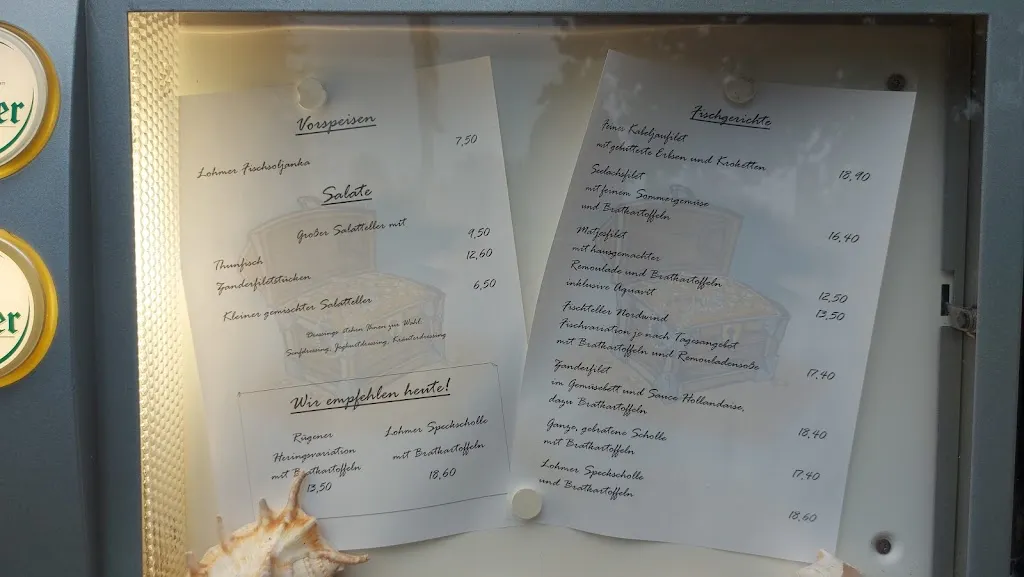 er
er
Vorspeisen
7,50
Lohmer Fischsoljanka
Salate
Großer Salatteller mit
9,50
Thunfisch
12,60
Zanderfiletstücken
6,50
Kleiner gemischter Salatteller
Dressings stehen Ihnen zur Wahl
Senfdressing, Joghurtdressing, Kräuterdressing
Wir empfehlen heute!
Rügener
Heringsvariation
mit Bratkartoffeln
13,50
Lohmer Speckscholle
mit Bratkartoffeln
18,60
Fischgerichte
Kabeljaufilet
mit gebutterte Erbsen und Kroketten
18,90
Seelachsfilet
mit feinem Sommergemüse
und Bratkartoffeln
16,40
Matjesfilet
mit hausgemachter
Remoulade und Bratkartoffeln
12,50
inklusive Aquavit
13,50
Fischteller Nordwind
Fischvariation je nach Tagesangebot
mit Bratkartoffeln und Remouladensoße
17,40
Zanderfilet
im Gemüsebett und Sauce Hollandaise,
dazu Bratkartoffeln
18,40
Ganze, gebratene Scholle
mit Bratkartoffeln
17,40
Lohmer Speckscholle
und Bratkartoffeln
18,60